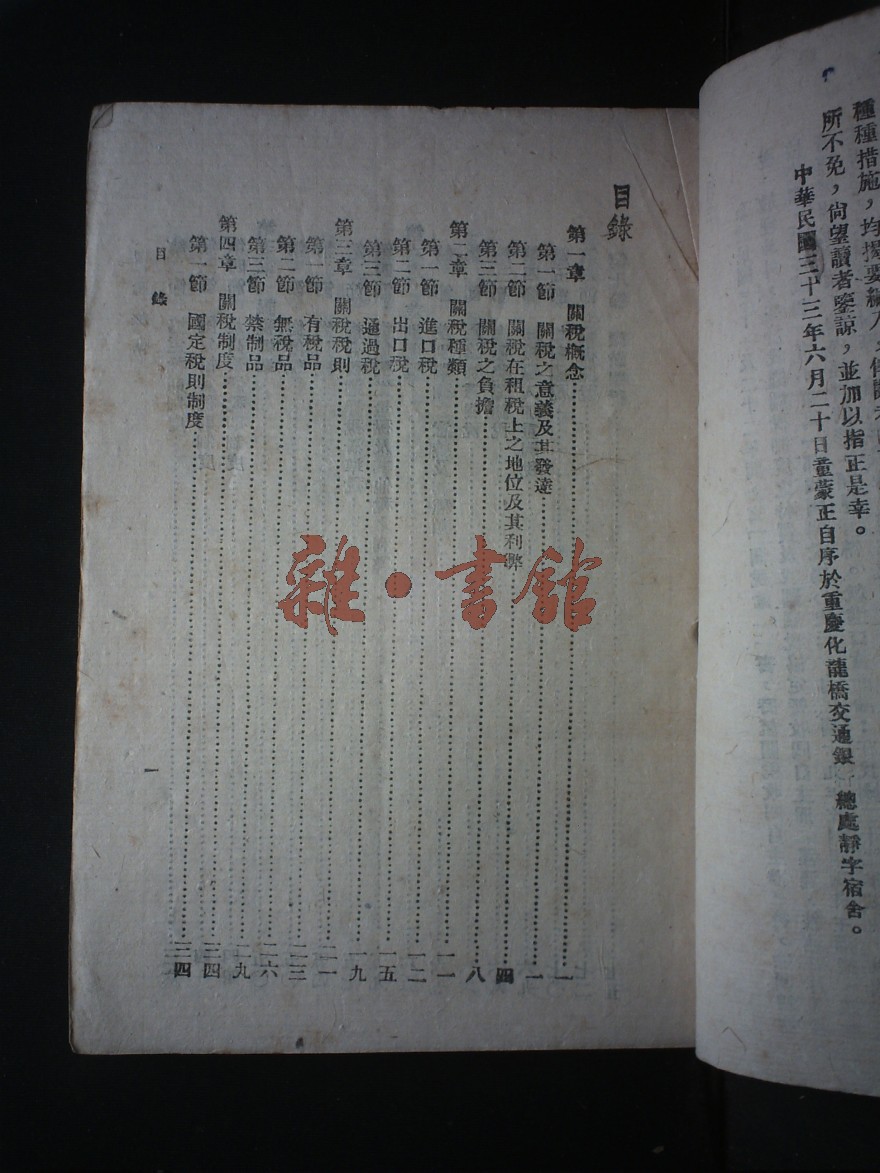 種種措施，均擇要編入，
所不免，尙望讀者鑒諒，並加以指正是幸。
中華民國三十三年六月二十日童蒙正自序於重慶化龍橋交通銀 總處靜字宿舍。
目錄
第一章 關稅槪念……一
第一節 關稅之意義及其發達……一
第二節 關稅在租稅上之地位及其利弊……四
第三節 關稅之負擔……八
第二章 關稅種類……一一
第一節 進口稅……一二
第二節 出口稅……一五
第三節 通過稅……一九
第三章 關稅稅則……二一
第一節 有稅品……二一
第二節 無稅品……二三
第三節 禁制品……二六
第四章 關稅制度……二九
第一節 國定稅則制度……三四
目錄
一
雜·書館